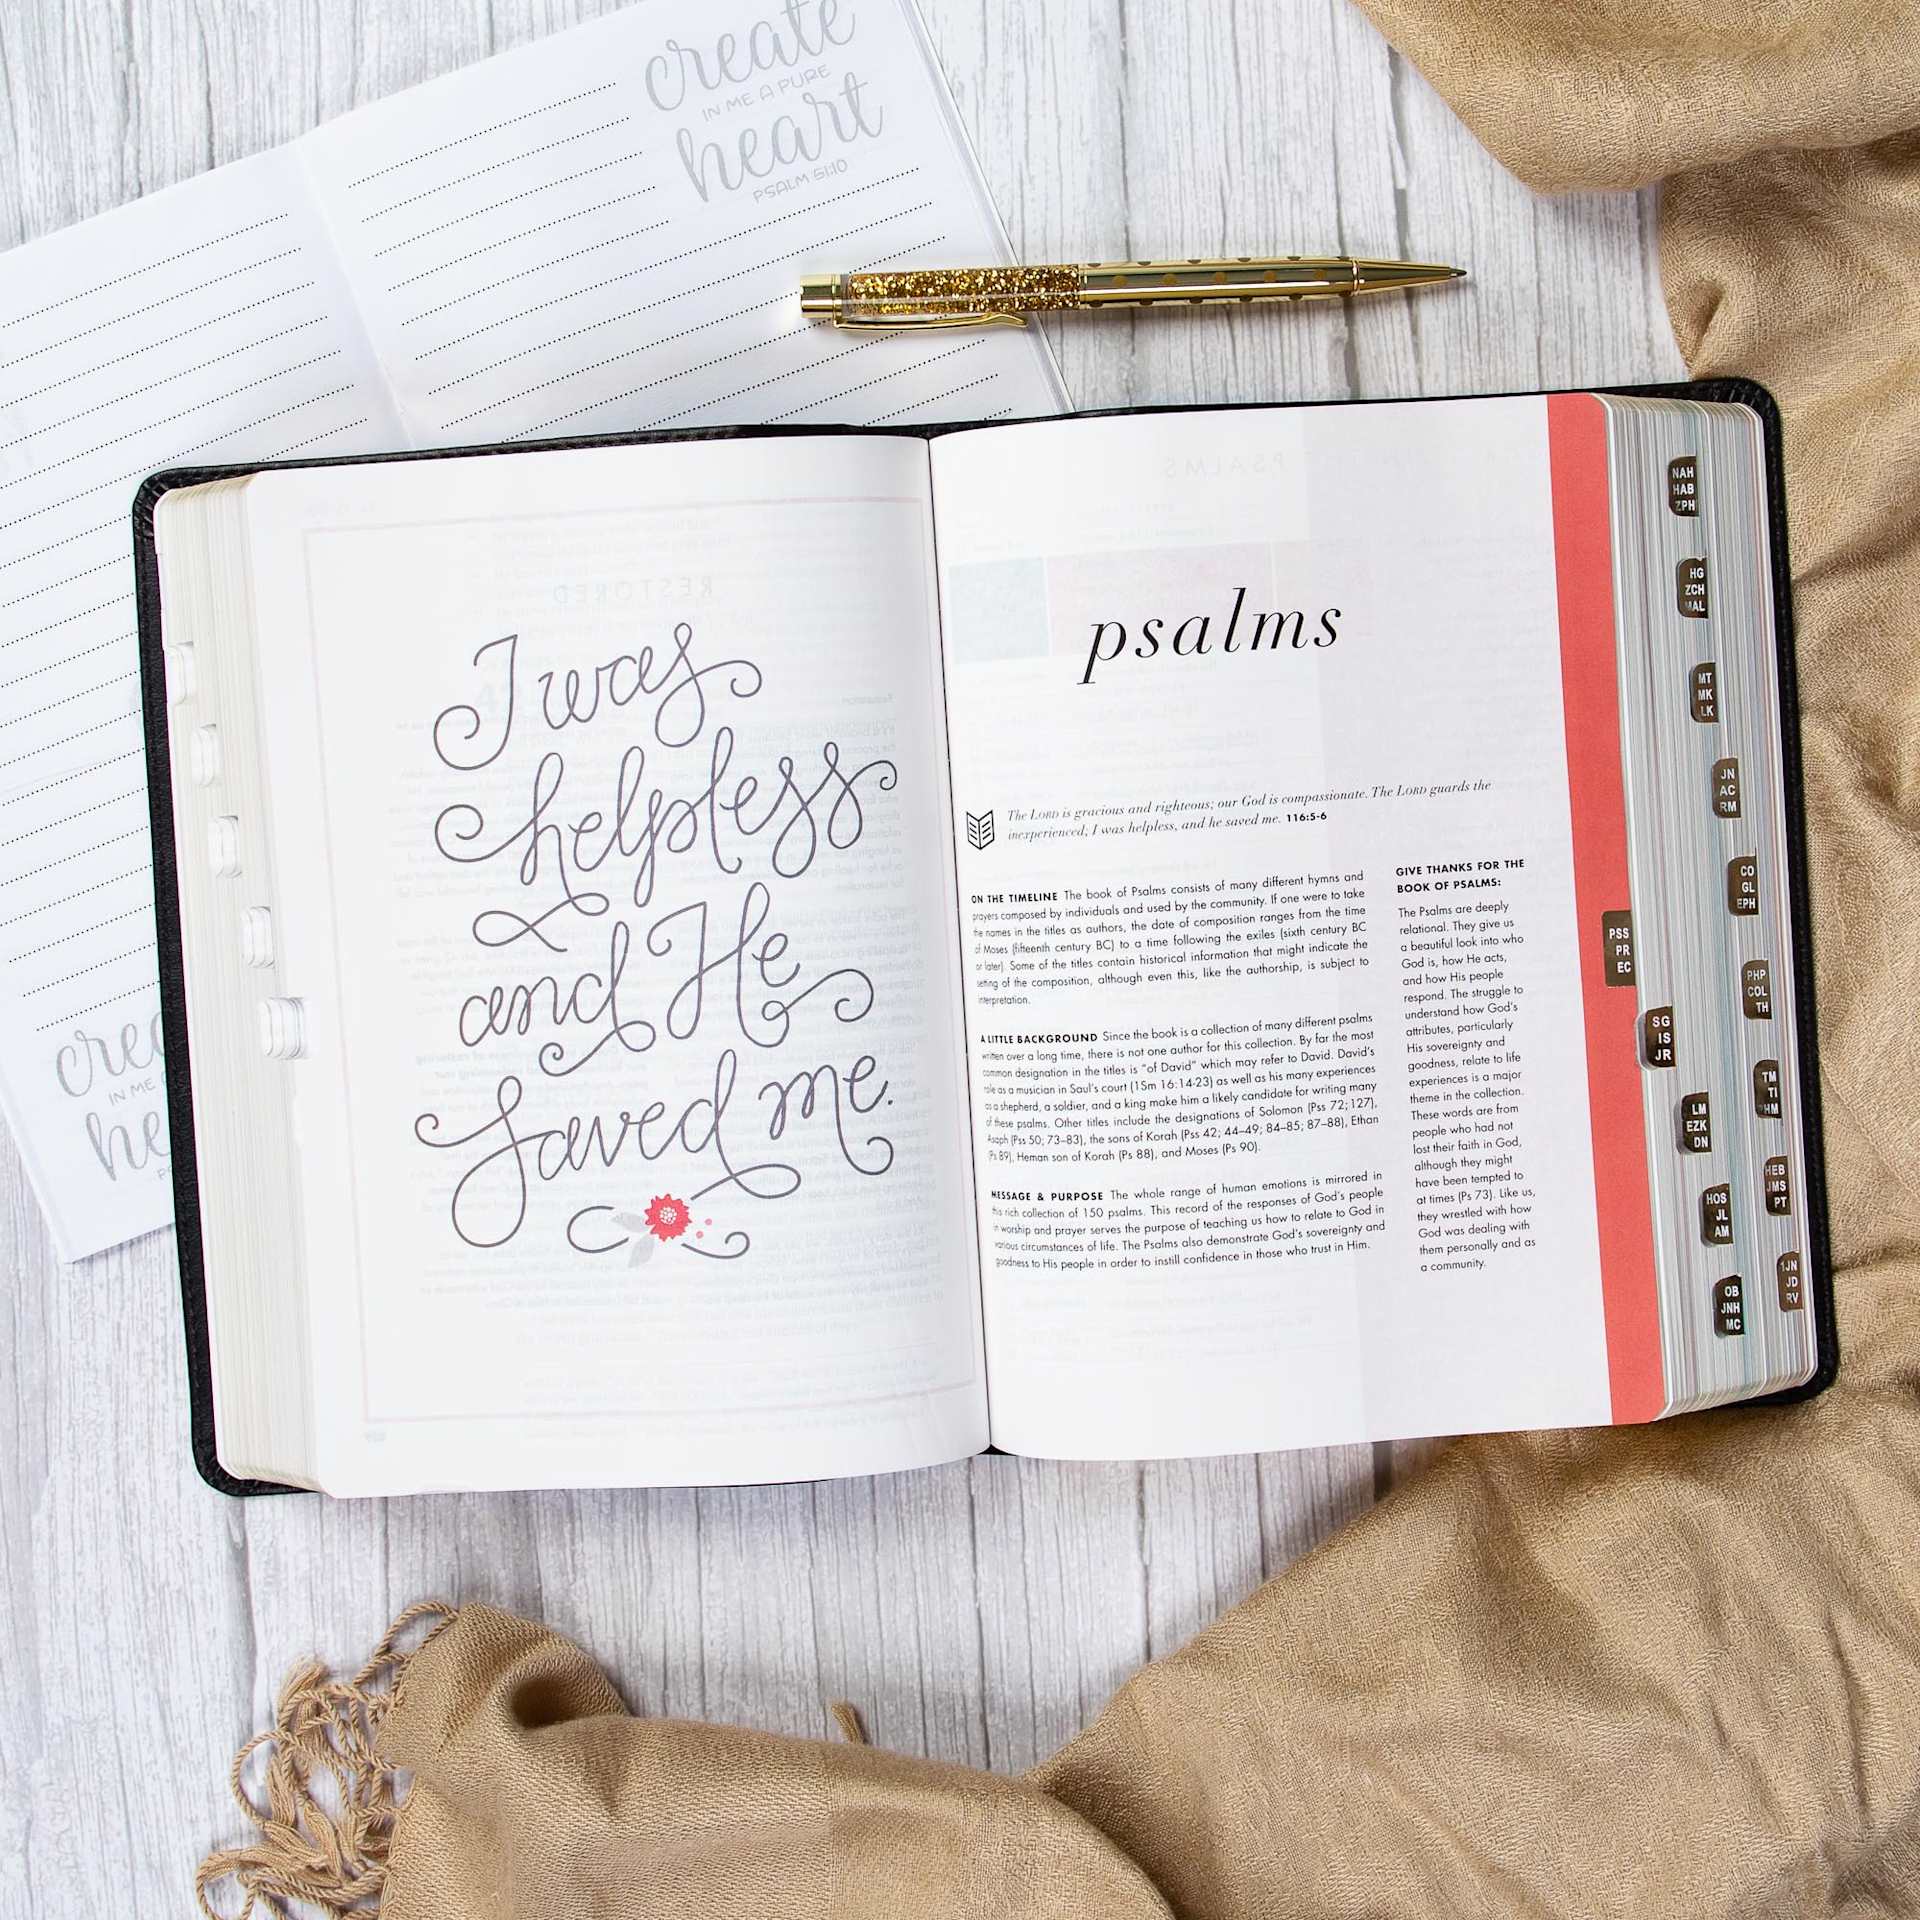 create
IN ME A PURE
heart
PSALM 51:10
I was
helpless
and He
saved me.
psalms
The LORD is gracious and righteous; our God is compassionate. The LORD guards the
inexperienced; I was helpless, and he saved me. 116:5-6
ON THE TIMELINE The book of Psalms consists of many different hymns and
prayers composed by individuals and used by the community. If one were to take
the names in the titles as authors, the date of composition ranges from the time
of Moses (fifteenth century BC) to a time following the exiles (sixth century BC
or later). Some of the titles contain historical information that might indicate the
setting of the composition, although even this, like the authorship, is subject to
interpretation.
A LITTLE BACKGROUND Since the book is a collection of many different psalms
written over a long time, there is not one author for this collection. By far the most
common designation in the titles is "of David" which may refer to David. David's
role as a musician in Saul's court (1Sm 16:14-23) as well as his many experiences
as a shepherd, a soldier, and a king make him a likely candidate for writing many
of these psalms. Other titles include the designations of Solomon (Pss 72; 127),
Asaph (Pss 50; 73–83), the sons of Korah (Pss 42; 44–49; 84–85; 87–88), Ethan
(Ps 89), Heman son of Korah (Ps 88), and Moses (Ps 90).
MESSAGE & PURPOSE The whole range of human emotions is mirrored in
this rich collection of 150 psalms. This record of the responses of God's people
in worship and prayer serves the purpose of teaching us how to relate to God in
various circumstances of life. The Psalms also demonstrate God's sovereignty and
goodness to His people in order to instill confidence in those who trust in Him.
GIVE THANKS FOR THE
BOOK OF PSALMS:
The Psalms are deeply
relational. They give us
a beautiful look into who
God is, how He acts,
and how His people
respond. The struggle to
understand how God's
attributes, particularly
His sovereignty and
goodness, relate to life
experiences is a major
theme in the collection.
These words are from
people who had not
lost their faith in God,
although they might
have been tempted to
at times (Ps 73). Like us,
they wrestled with how
God was dealing with
them personally and as
a community.
PSS
PR
EC
SG
IS
JR
LM
EZK
DN
HOS
JL
AM
OB
JNH
MC
NAH
HAB
ZPH
HG
ZCH
MAL
MT
MK
LK
JN
AC
RM
CO
GL
EPH
PHP
COL
TH
TM
TI
PHM
HEB
JMS
PT
1JN
JD
RV
IN ME